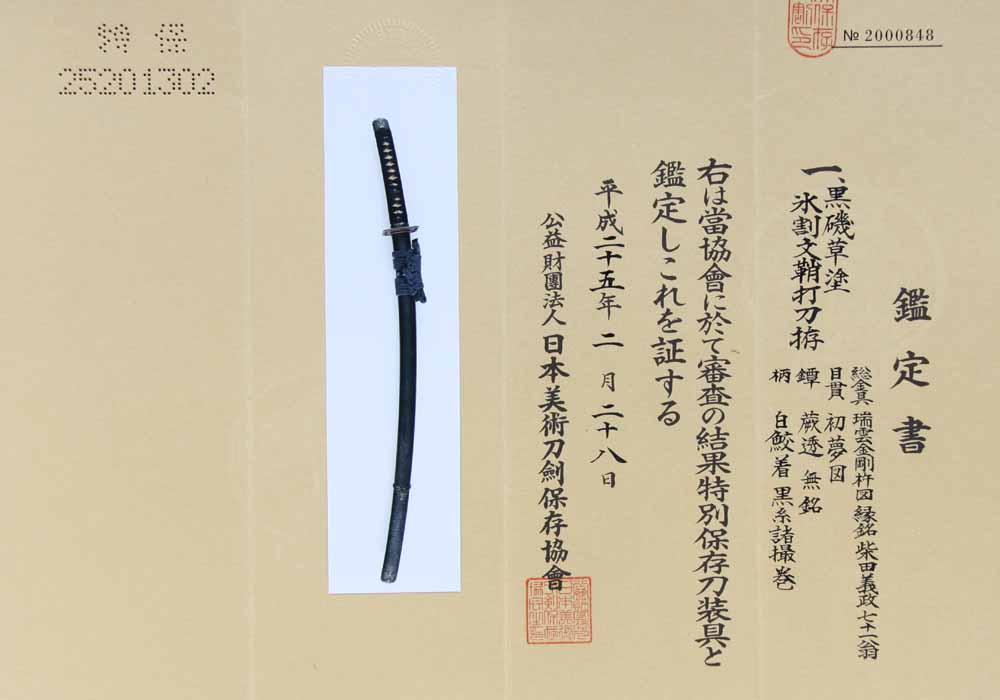 鑑定書
一、黒磯草塗
氷割文鞘打刀拵
総金具 瑞雲金剛杵図 縁銘 柴田義政七十二翁
目貫 初夢図
鐔 蕨透 無銘
柄 白鮫着 黒糸諸撮巻
右は當協會に於て審査の結果特別保存刀装具と
鑑定しこれを証する
平成二十五年二月二十八日
公益財團法人日本美術刀劍保存協會
№ 2000848
特保
25201302